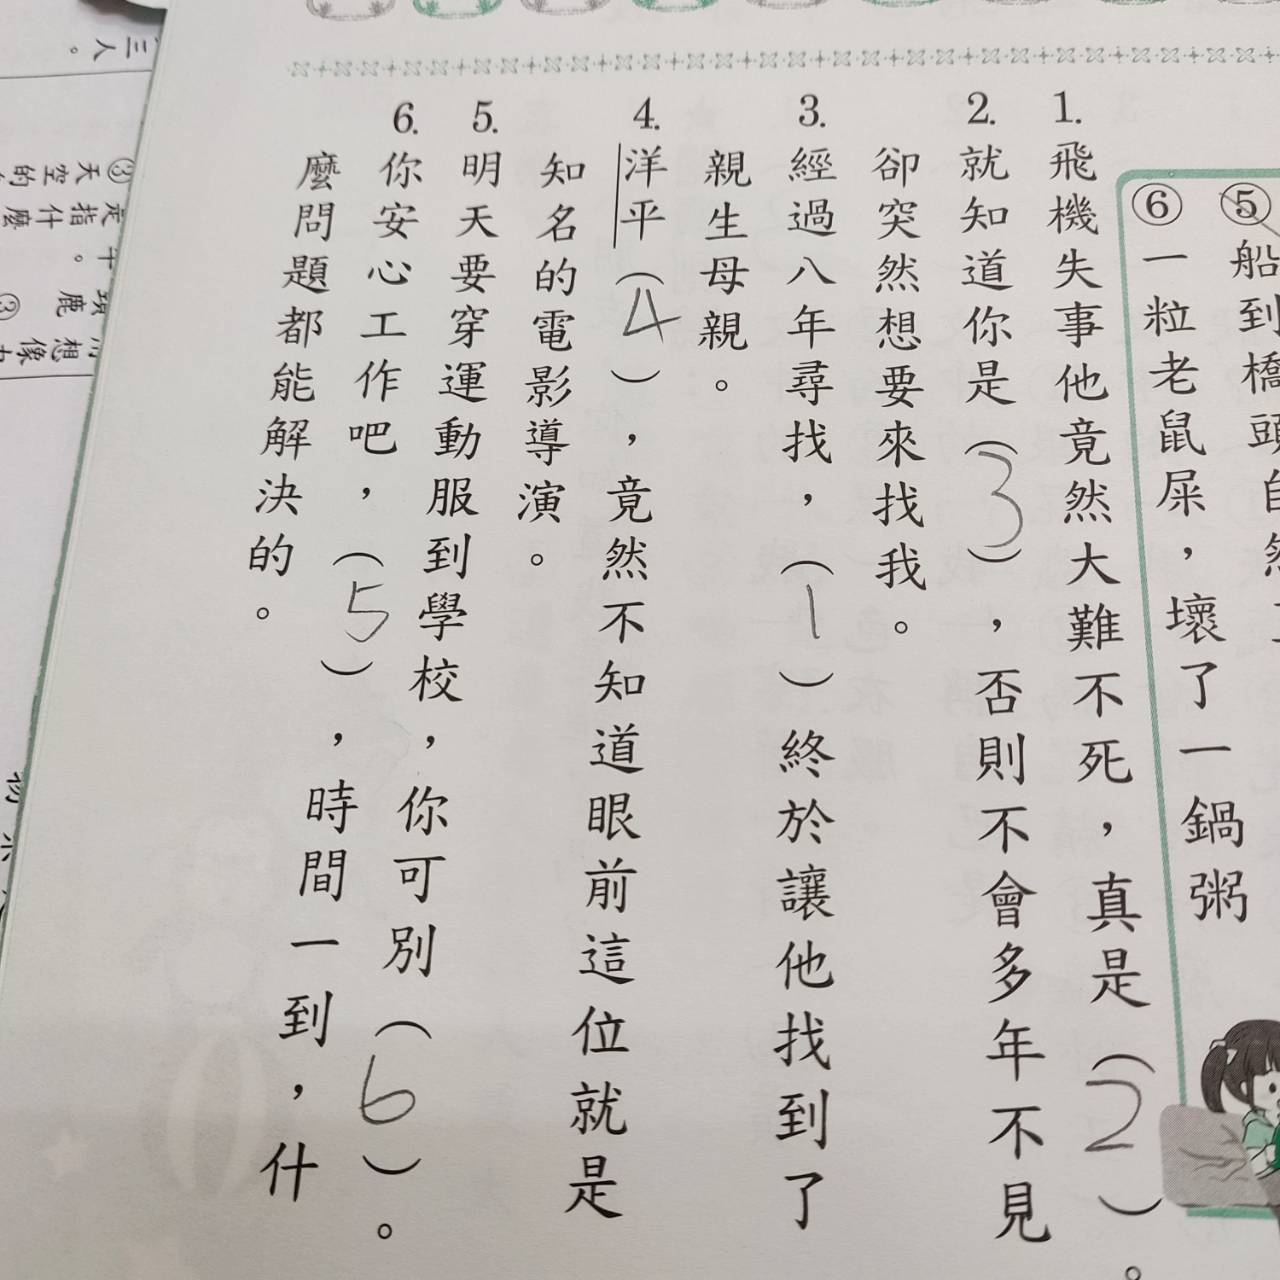 ⑤船到橋頭自然
⑥一粒老鼠屎，壞了一鍋粥
1.飛機失事他竟然大難不死，真是（2）。
2.就知道你是（3），否則不會多年不見
卻突然想要來找我。
3.經過八年尋找，（1）終於讓他找到了
親生母親。
4.洋平（4），竟然不知道眼前這位就是
知名的電影導演。
5.明天要穿運動服到學校，你可別（6）。
6.你安心工作吧，（5），時間一到，什
麼問題都能解決的。
三人。
③天空的
是指什麼
鹿 ③
想像